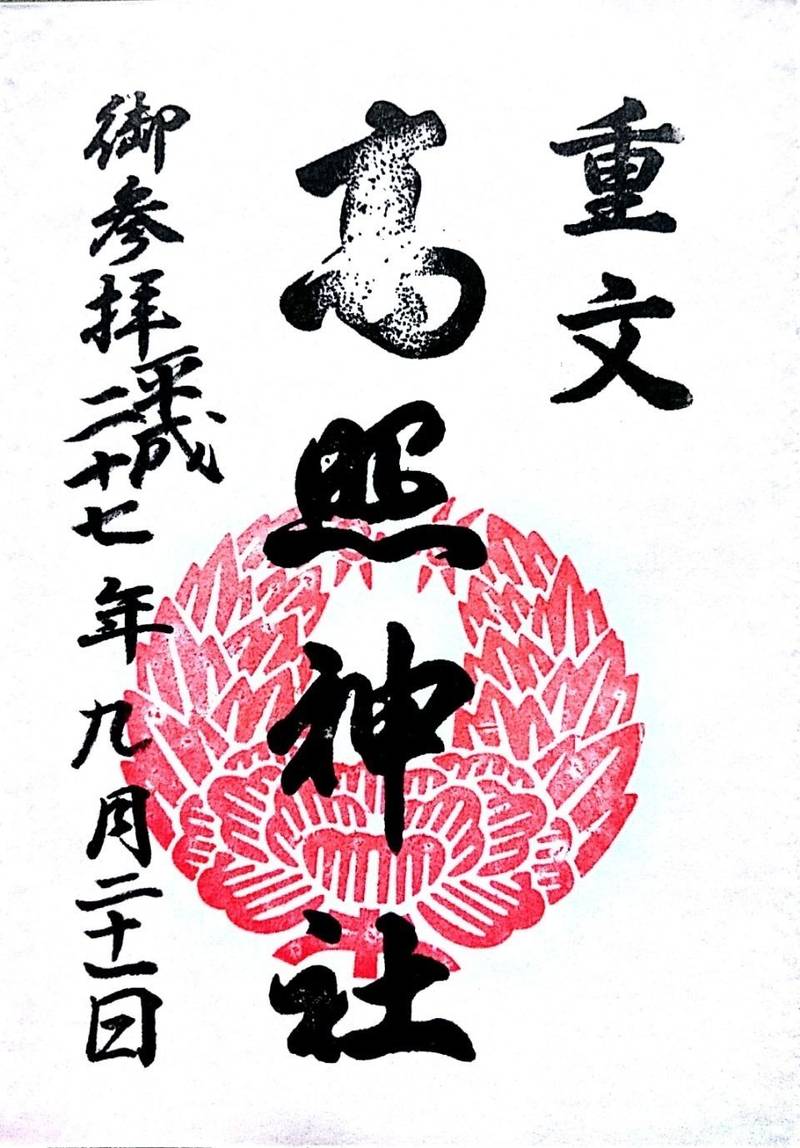 重文
高照神社
御参拝
平成
二十七年九月二十一日